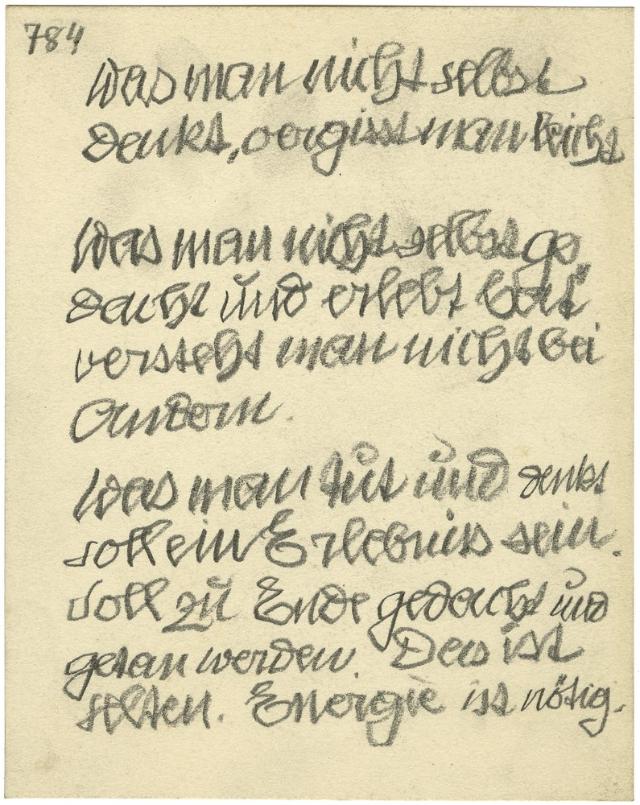 784
Was man nicht selbst
denkt, vergisst man leicht
Was man nicht selbst ge
dacht und erlebt hat
versteht man nicht bei
Andern.
Was man tut und denkt
soll ein Erlebnis sein.
Soll zu Ende gedacht und
getan werden. Das ist
selten. Energie ist nötig.